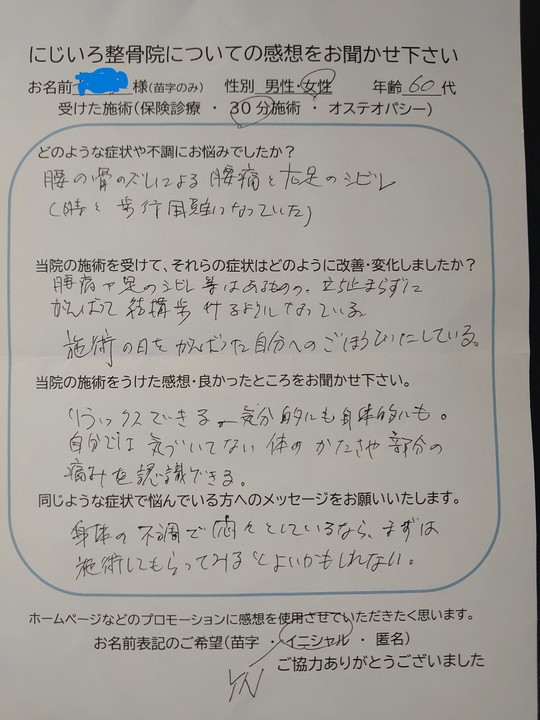 にじいろ整骨院についての感想をお聞かせ下さい
お名前 様(苗字のみ) 性別 男性・女性 年齢 60 代
受けた施術(保険診療 ・ 30分施術 ・ オステオパシー)
どのような症状や不調にお悩みでしたか?
腰の骨のズレによる腰痛と右足のシビレ
(時々歩行困難になっていた)
当院の施術を受けて、それらの症状はどのように改善・変化しましたか?
腰痛や足のシビレ等はあるものの、立ち止まらずに
がんばって結構歩けるようになっている。
施術の日をがんばった自分へのごほうびにしている。
当院の施術をうけた感想・良かったところをお聞かせ下さい。
リラックスできる 気分的にも身体的にも。
自分では気づいてない体のかたさや部分の
痛みを認識できる。
同じような症状で悩んでいる方へのメッセージをお願いいたします。
身体の不調で悶々としているなら、まずは
施術してもらってみるとよいかもしれない。
ホームページなどのプロモーションに感想を使用させていただきたく思います。
お名前表記のご希望(苗字 ・ イニシャル ・ 匿名)
ご協力ありがとうございました
YN